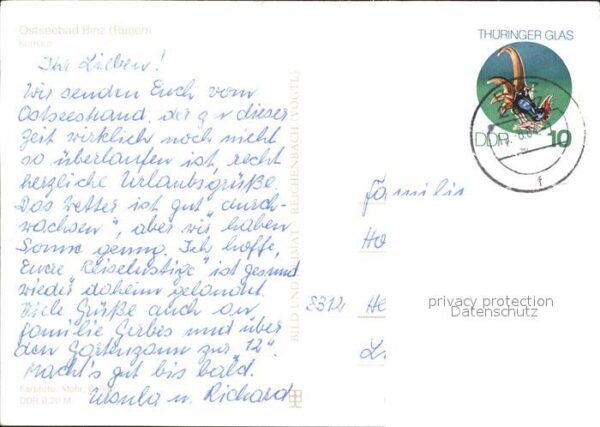 Ostseebad Binz (Rügen)
Kurhaus
Ihr Lieben!
Wir senden Euch vom
Ostseestrand, der a n dieser
Zeit wirklich noch nicht
so überlaufen ist, recht
herzliche Urlaubsgrüße.
Das Wetter ist gut „durch-
wachsen", aber wir haben
Sonne genug. Ich hoffe,
Eure „Reiselustige" ist gesund
wieder daheim gelandet.
Viele Grüße auch an
Familie Gerbes und über
den Gartenzaun zur „12".
Macht's gut bis bald.
Ursula u. Richard
Farbfoto: Mohr,
DDR 0,20 M
BILD UND HEIMAT REICHENBACH (VOGTL)
THÜRINGER GLAS
DDR 10
Familie
Ho
5312 He
L
privacy protection
Datenschutz